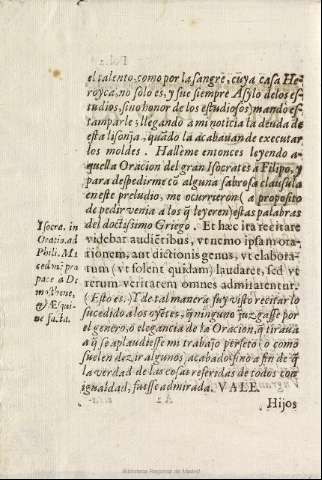 el talento, como por la sangre, cuya casa He-
royca, no solo es, y fue siempre Asylo de los es-
tudios, sino honor de los estudiosos) mandò es-
tamparle; llegando a mi noticia la deuda de
esta lisonja, quãdo la acabauan de executar
los moldes. Hallème entonces leyendo a-
quella Oracion del gran Isocrates à Filipo, y
para despedirme cõ alguna sabrosa clausula
en este preludio, me ocurrieron (a proposito
de pedir venia a los q̃ leyeren) estas palabras
del doctissimo Griego. Et hæc ita recitare
videbar auditoribus, vt nemo ipsam ora-
tionem, aut dictionis genus, vt elabora-
tum (vt solent quidam) laudaret, sed vt
rerum veritatem omnes admirarentur.
(Esto es.) Y de tal manera fuy visto recitar lo
sucedido a los oyẽtes, q̃ ninguno juzgasse por
el genero, ò elegancia de la Oracion, q̃ tiraua
a q̃ se aplaudiesse mi trabajo perfeto (ò como
suelen dezir algunos, acabado) sino a fin de q̃
la verdad de las cosas referidas de todos con
igualdad, fuesse admirada. VALE.
Hijos
Isocra. in
Oratio. ad
Phili. Ma
cedon. pro
pace a De
Biblioteca Regional de Madrid